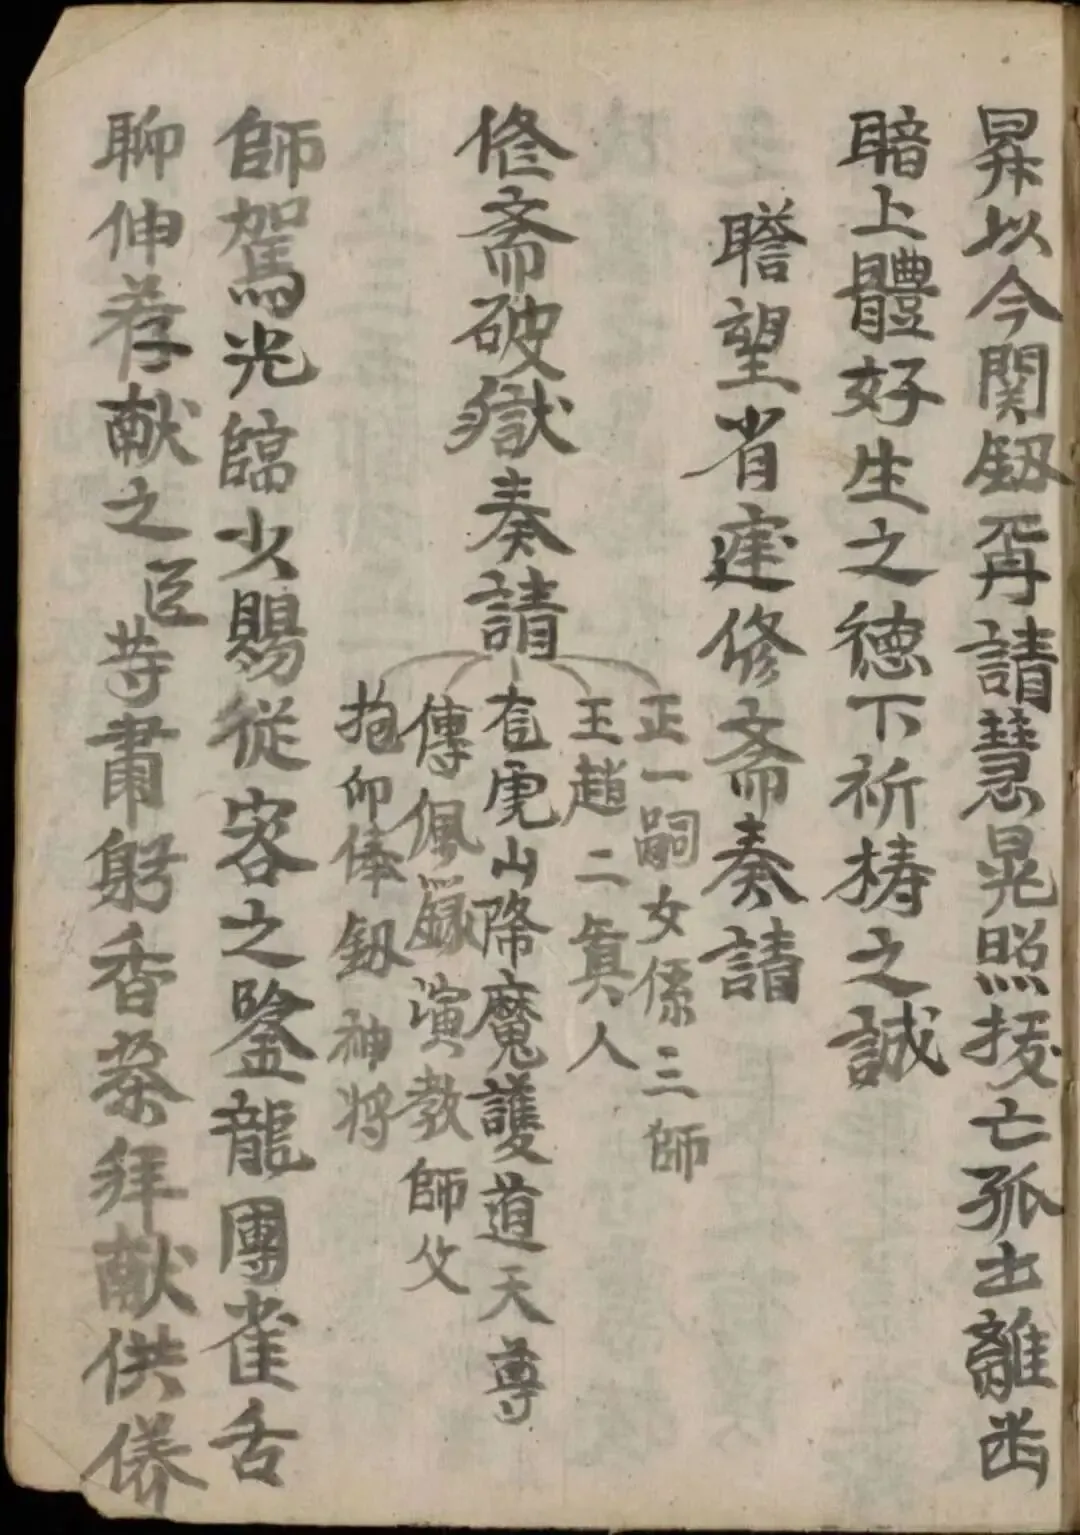 昇以今関釼再請慧晃照㧞亡孤出離幽
暗上體好生之德下祈禱之誠
瞻望省躔修斋奏請
修斋破獄奏請
正一嗣女係三師
王趙二眞人
在虎山降魔護道天尊
傳佩籙演教師父
抱卬俸釼神将
師駕光臨少賜従容之鑒龍團雀舌
聊伸荐献之臣等肅躬香叅拜献供儀